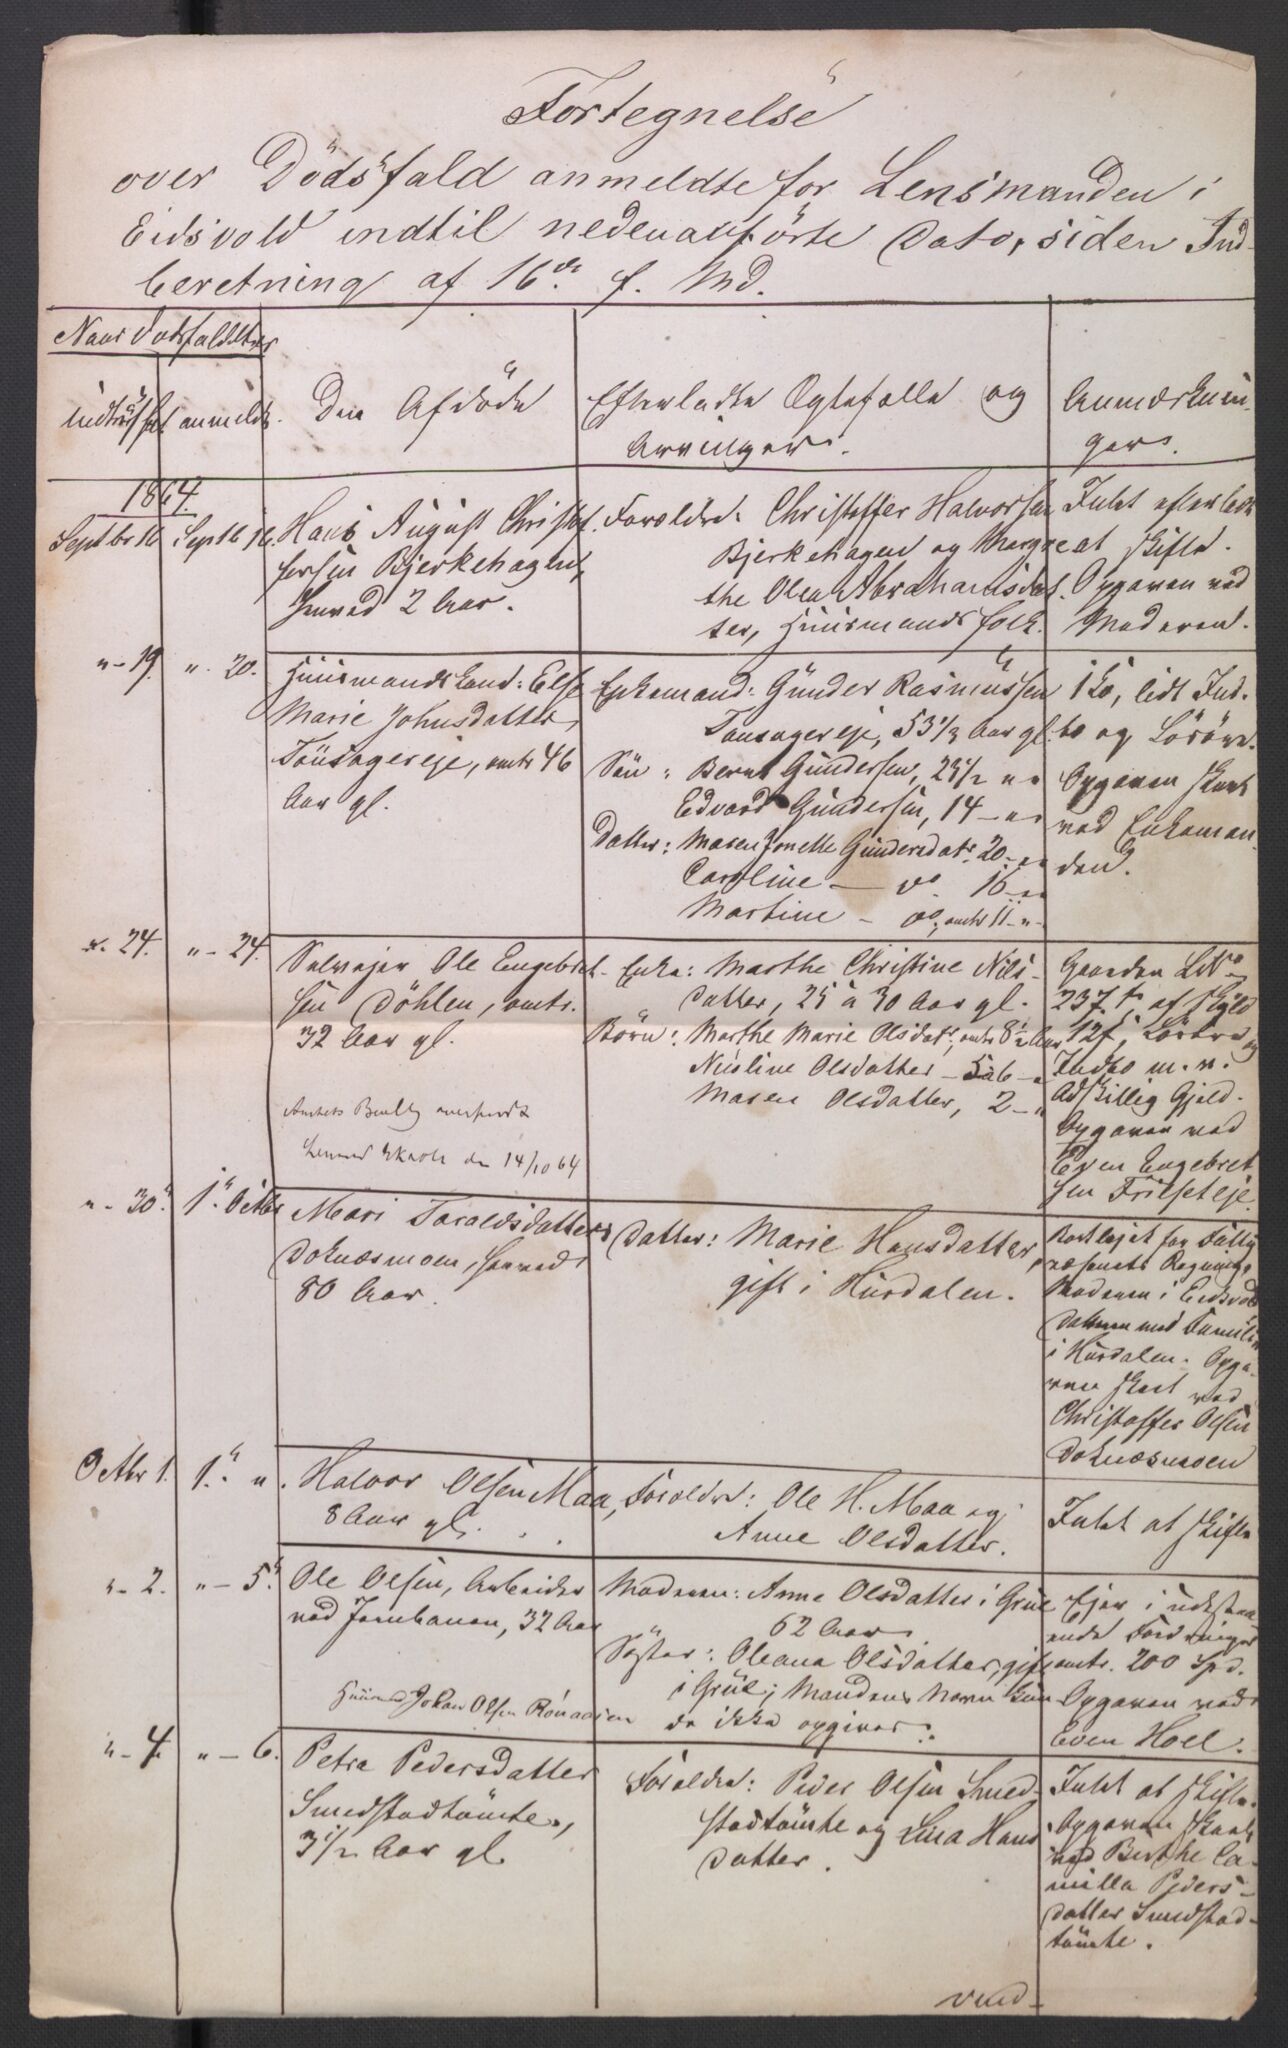 Fortegnelse
over Dödsfald anmeldte for Lensmanden i
Eidsvold indtil nedenanförte Dato, siden Ind-
beretning af 16de f. Md.
Naar Dödsfaldet er
indtruffet anmeldt.
Den Afdöde
Efterladte Ægtefælle og
Arvinger.
Anmærknin-
ger.
1864.
Septbr 16
Sept b 16.
Hans August Christof-
fersen Bjerkehagen,
henved 2 Aar.
Forældre: Christoffer Halvorsen
Bjerkehagen og Margre-
the Olea Abrahamsdat-
ter, Huusmandsfolk.
Intet efterladt
at skifte.
Opgaven ved
Moderen.
"- 19.
" 20.
Huusmandskone: Else
Marie Johnsdatter,
Tönsagereje, omtr 46
Aar gl.
Enkemand: Gunder Rasmussen
Tonsagereje, 53 1/3 Aar gl.
Sön: Bernt Gundersen, 23 1/2 " "
Edvard Gundersen, 14 - " "
Datter: Maren Jonette Gundersdatr 20 - " "
Caroline - do 16 - " "
Martine - do, omtr 11 - " -
1 Ko, lidt Ind-
bo og Lösöre.
Opgaven skeet
ved Enkeman-
den.
". 24.
" - 24.
Selvejer Ole Engebret-
sen Döhlen, omtr.
32 Aar gl.
Enke: Marthe Christine Nils-
datter, 25 à 30 Aar gl.
Börn: Marthe Marie Olsdatr, omtr 8 1/2 Aar
Nicoline Olsdatter - 5 à 6 - "
Maren Olsdatter, 2 - "
Gaarden LNo
237 af Skyld
12 f, Lösöre og
Indbo m. v.
Adskillig Gjeld.
Opgaven ved
Even Engebret
sen Frilseteje.
den 14/10 64
" - 30.
1. Octbr
Mari Taraldsdatter
Doknæsmoen, henved
80 Aar.
Datter: Marie Hansdatter,
gift i Hurdalen.
Bortlejet for Fattig
væsenets Regning,
Moderen i Eidsvold
Datteren med Familie
i Hurdalen. Opga-
ven skeet ved
Christoffer Olsen
Doknæsmoen
Octbr 1.
1. "
Halvor Olsen Maa,
8 Aar gl.
Forældre: Ole H. Maa og
Anne Olsdatter.
Intet at skifte
" - 2.
" - 5.
Ole Olsen, Arbeider
ved Jernbanen, 32 Aar
Huusmd Johan Olsen Rønaasen
Moderen: Anne Olsdatter i Grue
62 Aar.
Söster: Oleana Olsdatter, gift
i Grue; Mandens Navn kun-
de ikke opgives.
Ejer i udestaa
ende Fordringer
omtr. 200 Spd.
Opgaven ved
Even Hoel.
" - 4.
" - 6.
Petra Pedersdatter
Smedstadtömte,
3 1/2 Aar gl.
Forældre: Peder Olsen Smed-
stadtömte og Lina Hans
datter.
Intet at skifte.
Opgaven skeet
ved Berthe Ca-
milla Peders-
datter Smedstad-
tömte.
vend-